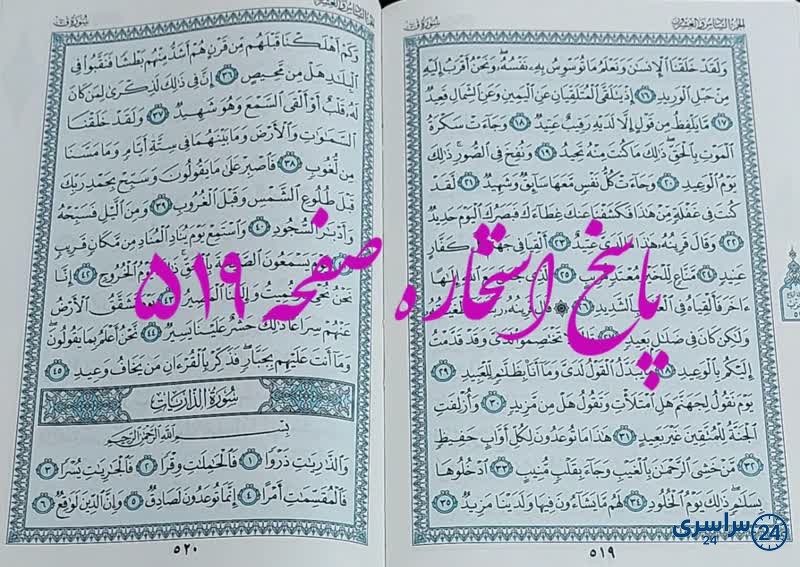 الجزء السادس والعشرون
سورة ق
ولقد خلقنا الإنسان ونعلم ما توسوس به نفسه ونحن أقرب إليه
من حبل الوريد ١٦ إذ يتلقى المتلقيان عن اليمين وعن الشمال قعيد
١٧ ما يلفظ من قول إلا لديه رقيب عتيد ١٨ وجاءت سكرة
الموت بالحق ذلك ما كنت منه تحيد ١٩ ونفخ في الصور ذلك
يوم الوعيد ٢٠ وجاءت كل نفس معها سائق وشهيد ٢١ لقد
كنت في غفلة من هذا فكشفنا عنك غطاءك فبصرك اليوم حديد
٢٢ وقال قرينه هذا ما لدي عتيد ٢٣ ألقيا في جهنم كل كفار
عنيد ٢٤ مناع للخير معتد مريب ٢٥ الذي جعل مع الله إلها
ءاخر فألقياه في العذاب الشديد ٢٦ قال قرينه ربنا ما أطغيته
ولكن كان في ضلال بعيد ٢٧ قال لا تختصموا لدي وقد قدمت
إليكم بالوعيد ٢٨ ما يبدل القول لدي وما أنا بظلام للعبيد ٢٩
يوم نقول لجهنم هل امتلأت وتقول هل من مزيد ٣٠ وأزلفت
الجنة للمتقين غير بعيد ٣١ هذا ما توعدون لكل أواب حفيظ
٣٢ من خشي الرحمن بالغيب وجاء بقلب منيب ٣٣ ادخلوها
بسلام ذلك يوم الخلود ٣٤ لهم ما يشاءون فيها ولدينا مزيد ٣٥
٥١٩
الجزء السادس والعشرون
سورة ق
وكم أهلكنا قبلهم من قرن هم أشد منهم بطشا فنقبوا في
البلاد هل من محيص ٣٦ إن في ذلك لذكرى لمن كان
له قلب أو ألقى السمع وهو شهيد ٣٧ ولقد خلقنا
السماوات والأرض وما بينهما في ستة أيام وما مسنا
من لغوب ٣٨ فاصبر على ما يقولون وسبح بحمد ربك
قبل طلوع الشمس وقبل الغروب ٣٩ ومن الليل فسبحه
وأدبار السجود ٤٠ واستمع يوم يناد المناد من مكان قريب
٤١ يوم يسمعون الصيحة بالحق ذلك يوم الخروج ٤٢ إنا
نحن نحيي ونميت وإلينا المصير ٤٣ يوم تشقق الأرض
عنهم سراعا ذلك حشر علينا يسير ٤٤ نحن أعلم بما يقولون
وما أنت عليهم بجبار فذكر بالقرءان من يخاف وعيد ٤٥
سورة الذاريات
بسم الله الرحمن الرحيم
والذاريات ذروا ١ فالحاملات وقرا ٢ فالجاريات يسرا ٣
فالمقسمات أمرا ٤ إنما توعدون لصادق ٥ وإن الدين لواقع ٦
٥٢٠
پاسخ استخاره صفحه ۵۱۹
سراسری
24
24